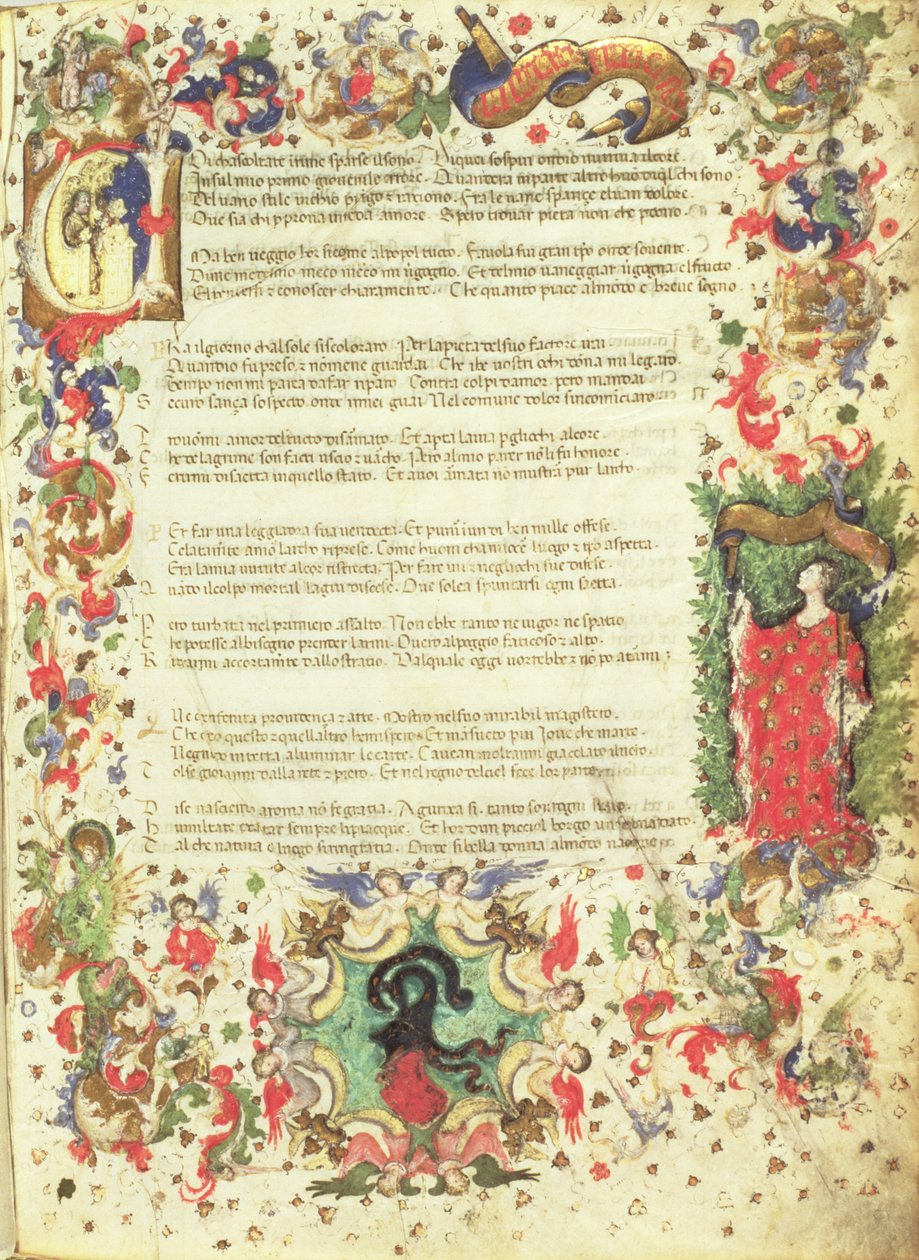 Oi chascoltate inrime sparse il sono. Di quei sospiri ondio nutriua alcore.
In sul mio primo giouenile errore. Quandera inparte altro huō dⱥ qͥl chi sono
Del uario stile inchio pi͞ago ⁊ ragiono. Fra le uane sperançe eluan dolore.
Oue sia chi ꝑ proua intēda amore. Spero trouar pieta non che pdono.
Ma ben ueggio hor sicome alpopol tucto. Fauola fui gran tp̄o onde souente.
Di me medesmo meco meco mi ūgogno. Et delmio uaneggiar ūgogna e lfructo
El pentersi ⁊ conoscer chiaramente. Che quanto piace almōdo e breue sogno.
Era ilgiorno chalsole siscoloraro. Per la pieta delsuo factore irai.
Quandio fu preso ⁊ nō mene guardai. Che ibe uostri ochi dōna mi legaro.
Tempo non mi parea dafar riparo. Contra colpi damor. pero mandai
Securo sança sospecto. onde imiei guai Nel comune dolor sincominciaro
Trouōmi amor deltucto disarmato. Et aperta lauia pgliochi alcore.
Che delagrime son facti uscio ⁊ uarcho. Pero almio parer nō li fu honore
Ferirmi disaetta inquello stato. Et auoi armata nō mostrar pur larcho.
Per far una leggiadra sua uendecta. Et punir iun di ben mille offese.
Celatamēte amor larcho riprese. Come huom cha nocer luogo ⁊ tp̄o aspetta.
Era lamia uirtute alcor ristrecta. Per fare iui ⁊ negliochi sue difese.
Quādo ilcolpo mortal lagiu discese. Oue solea spuntarsi ogni saetta.
Pero turbata nel primiero assalto. Non ebbe tanto ne uigor ne spatio
Che potesse albisogno prender larmi. Ouero alpoggio faticoso ⁊ alto.
Ritrarmi accortamēte dallo stratio. Dalquale oggi uorrebbe ⁊ nō po atarmi
Que chenfinita prouidença ⁊ arte. Mostro nelsuo mirabil magistero.
Che crio questo ⁊ quellaltro hemispero. Et mansueto piu Ioue che marte.
Vegnēdo in terra aluminar le carte. Cauean moltanni gia celato iluero.
Tolse giouanni dalla rete ⁊ piero. Et nel regno delciel fece lor parte.
Di se nascendo aroma nō fe gratia. A giudea si. tanto soura ogni stato.
Humiltate exaltar sempre lipiacque. Et hor dun picciol borgo un sol na dato.
Tal che natura e luogo siringratia. Onde sibella donna almōdo nacque